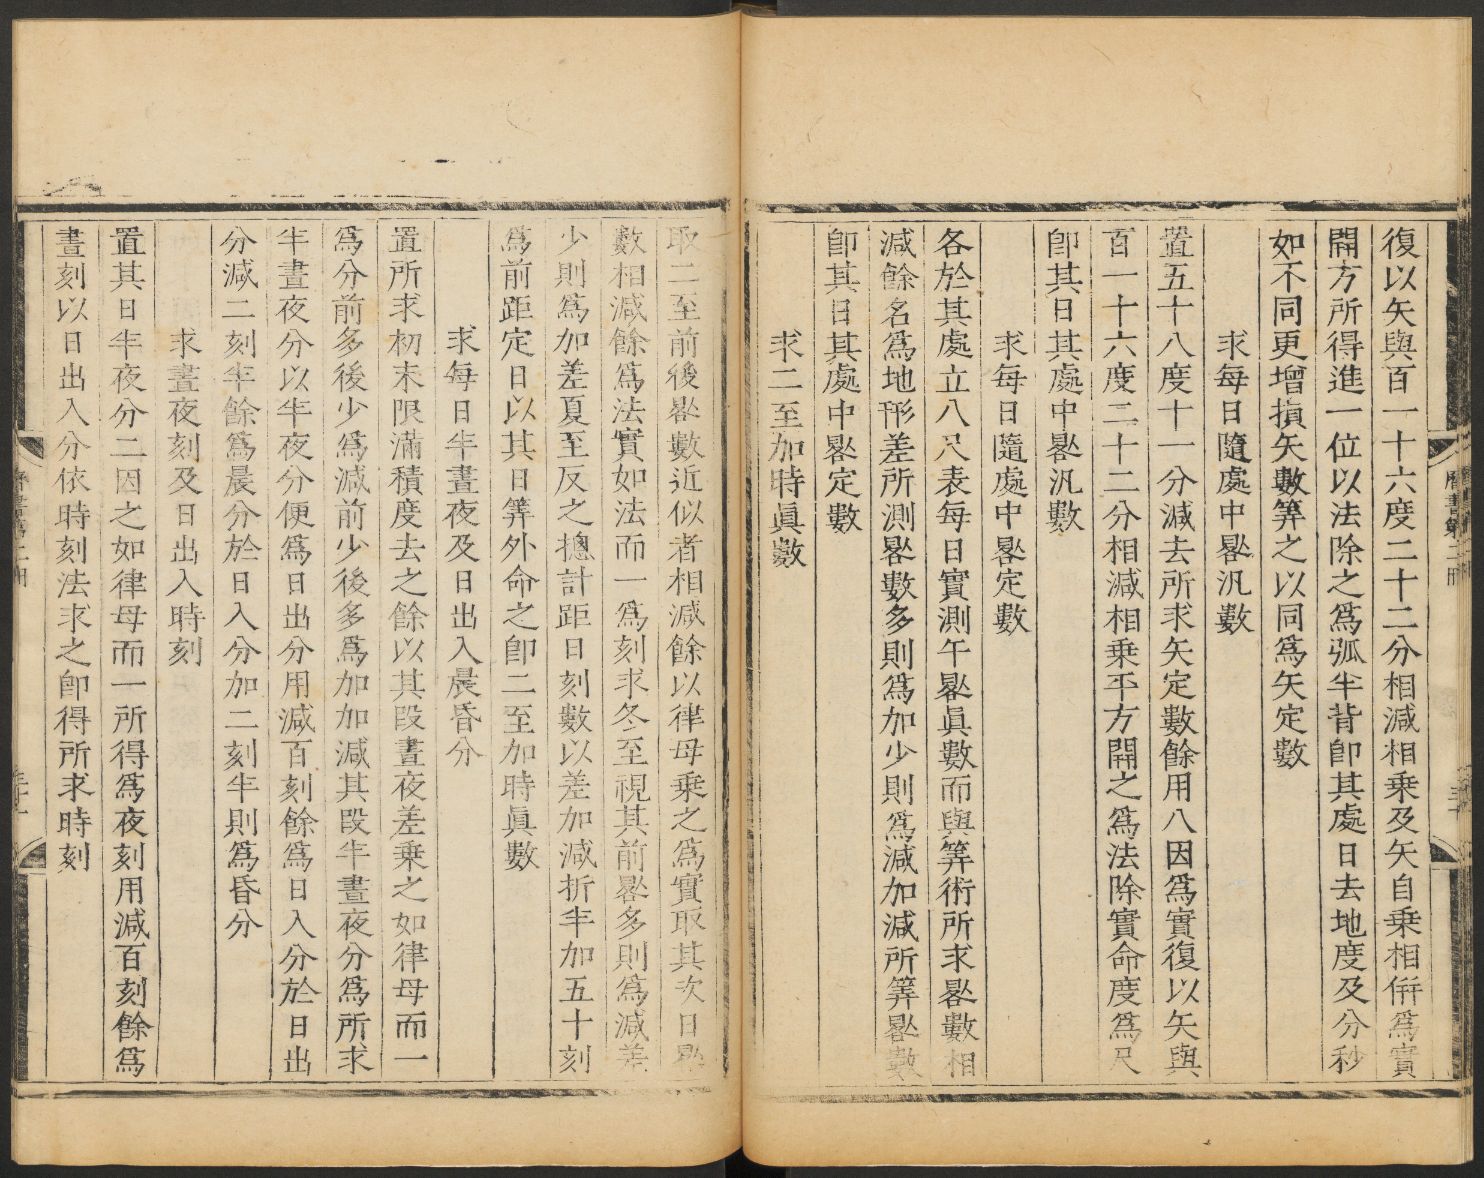 復以矢與百一十六度二十二分相減相乘及矢自乘相倂爲實
開方所得進一位以法除之爲弧半背卽其處日去地度及分秒
如不同更增損矢數筭之以同爲矢定數
求每日隨處中晷汎數
置五十八度十一分減去所求矢定數餘用八因爲實復以矢與
百一十六度二十二分相減相乘平方開之爲法除實命度爲尺
卽其日其處中晷汎數
求每日隨處中晷定數
各於其處立八尺表每日實測午晷眞數而與筭術所求晷數相
減餘名爲地形差所測晷數多則爲加少則爲減加減所筭晷數
卽其日其處中晷定數
求二至加時眞數
取二至前後晷數近似者相減餘以律母乘之爲實取其次日晷
數相減餘爲法實如法而一爲刻求冬至視其前晷多則爲減差
少則爲加差夏至反之摠計距日刻數以差加減折半加五十刻
爲前距定日以其日筭外命之卽二至加時眞數
求每日半晝夜及日出入晨昏分
置所求初末限滿積度去之餘以其段晝夜差乘之如律母而一
爲分前多後少爲減前少後多爲加加減其段半晝夜分爲所求
半晝夜分以半夜分便爲日出分用減百刻餘爲日入分於日出
分減二刻半餘爲晨分於日入分加二刻半則爲昏分
求晝夜刻及日出入時刻
置其日半夜分二因之如律母而一所得爲夜刻用減百刻餘爲
晝刻以日出入分依時刻法求之卽得所求時刻
曆書第二冊